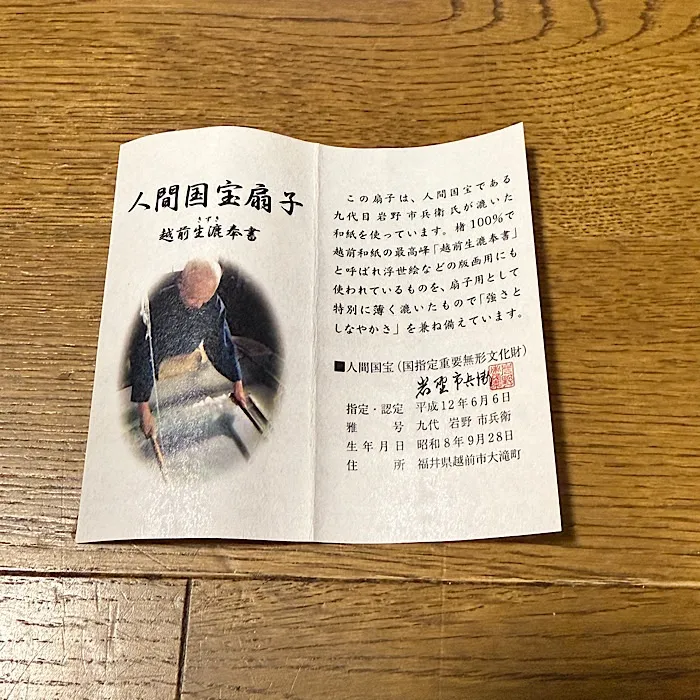 人間国宝扇子
きずき
越前生漉奉書
この扇子は、人間国宝である
九代目 岩野 市兵衛 氏が漉いた
和紙を使っています。楮100%で
越前和紙の最高峰「越前生漉奉書」
と呼ばれ浮世絵などの版画用にも
使われているものを、扇子用として
特別に薄く漉いたもので「強さと
しなやかさ」を兼ね備えています。
■人間国宝(国指定重要無形文化財)
岩野市兵衛
指定・認定 平成12年6月6日
雅号 九代 岩野 市兵衛
生年月日 昭和8年9月28日
住所 福井県越前市大滝町